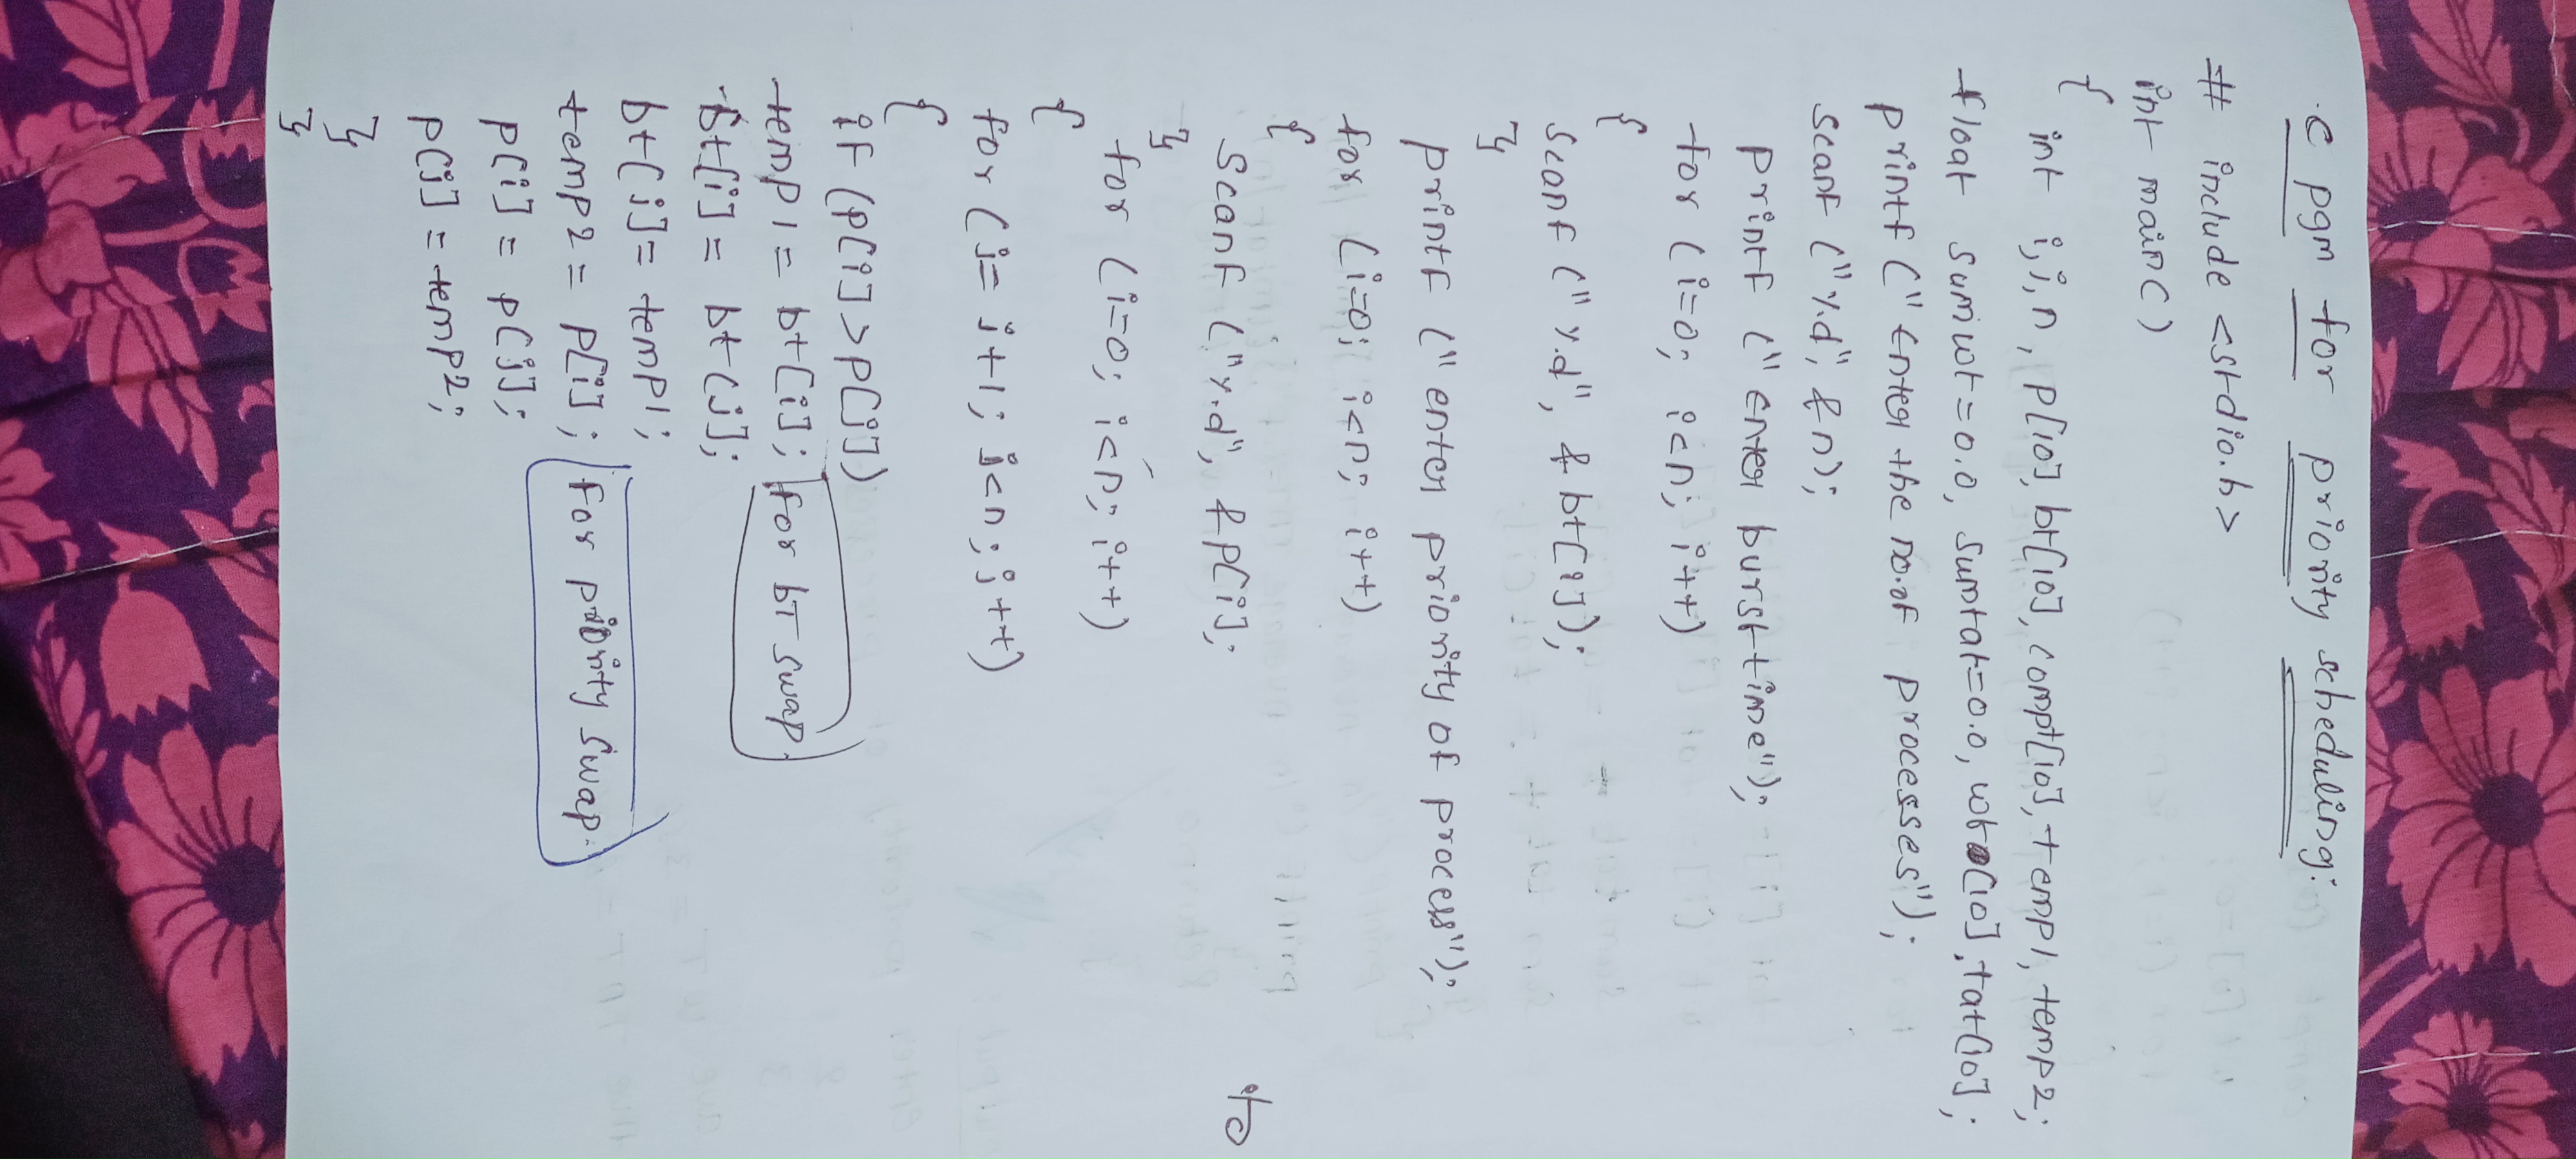 C pgm for priority scheduling:
# include <stdio.h>
int main()
{
int i,j,n, p[10], bt[10], compt[10], temp1, temp2;
float sumwt=0.0, sumtat=0.0, wt[10], tat[10];
printf ("Enter the no.of processes");
scanf ("%d", &n);
printf ("Enter burst time");
for (i=0; i<n; i++)
{
scanf ("%d", &bt[i]);
}
printf ("enter priority of process");
for (i=0; i<n; i++)
{
scanf ("%d", &p[i];
}
for (i=0; i<n; i++)
{
for (j=j+1; j<n; j++)
{
if (p[i]>p[j])
temp1 = bt[i]; for bt swap.
bt[i] = bt[j];
bt[j] = temp1;
temp2 = p[i]; for priority swap.
p[i] = p[j];
p[j] = temp2;
}
}